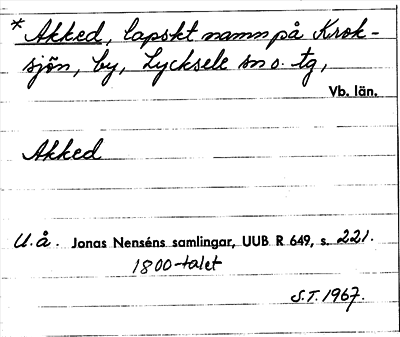 * Akked, lapskt namn på Krok-
sjön, by, Lycksele sn o. tg,
Vb. län.
Akked
U.å. Jonas Nenséns samlingar, UUB R 649, s. 221.
1800-talet
S.T. 1967.